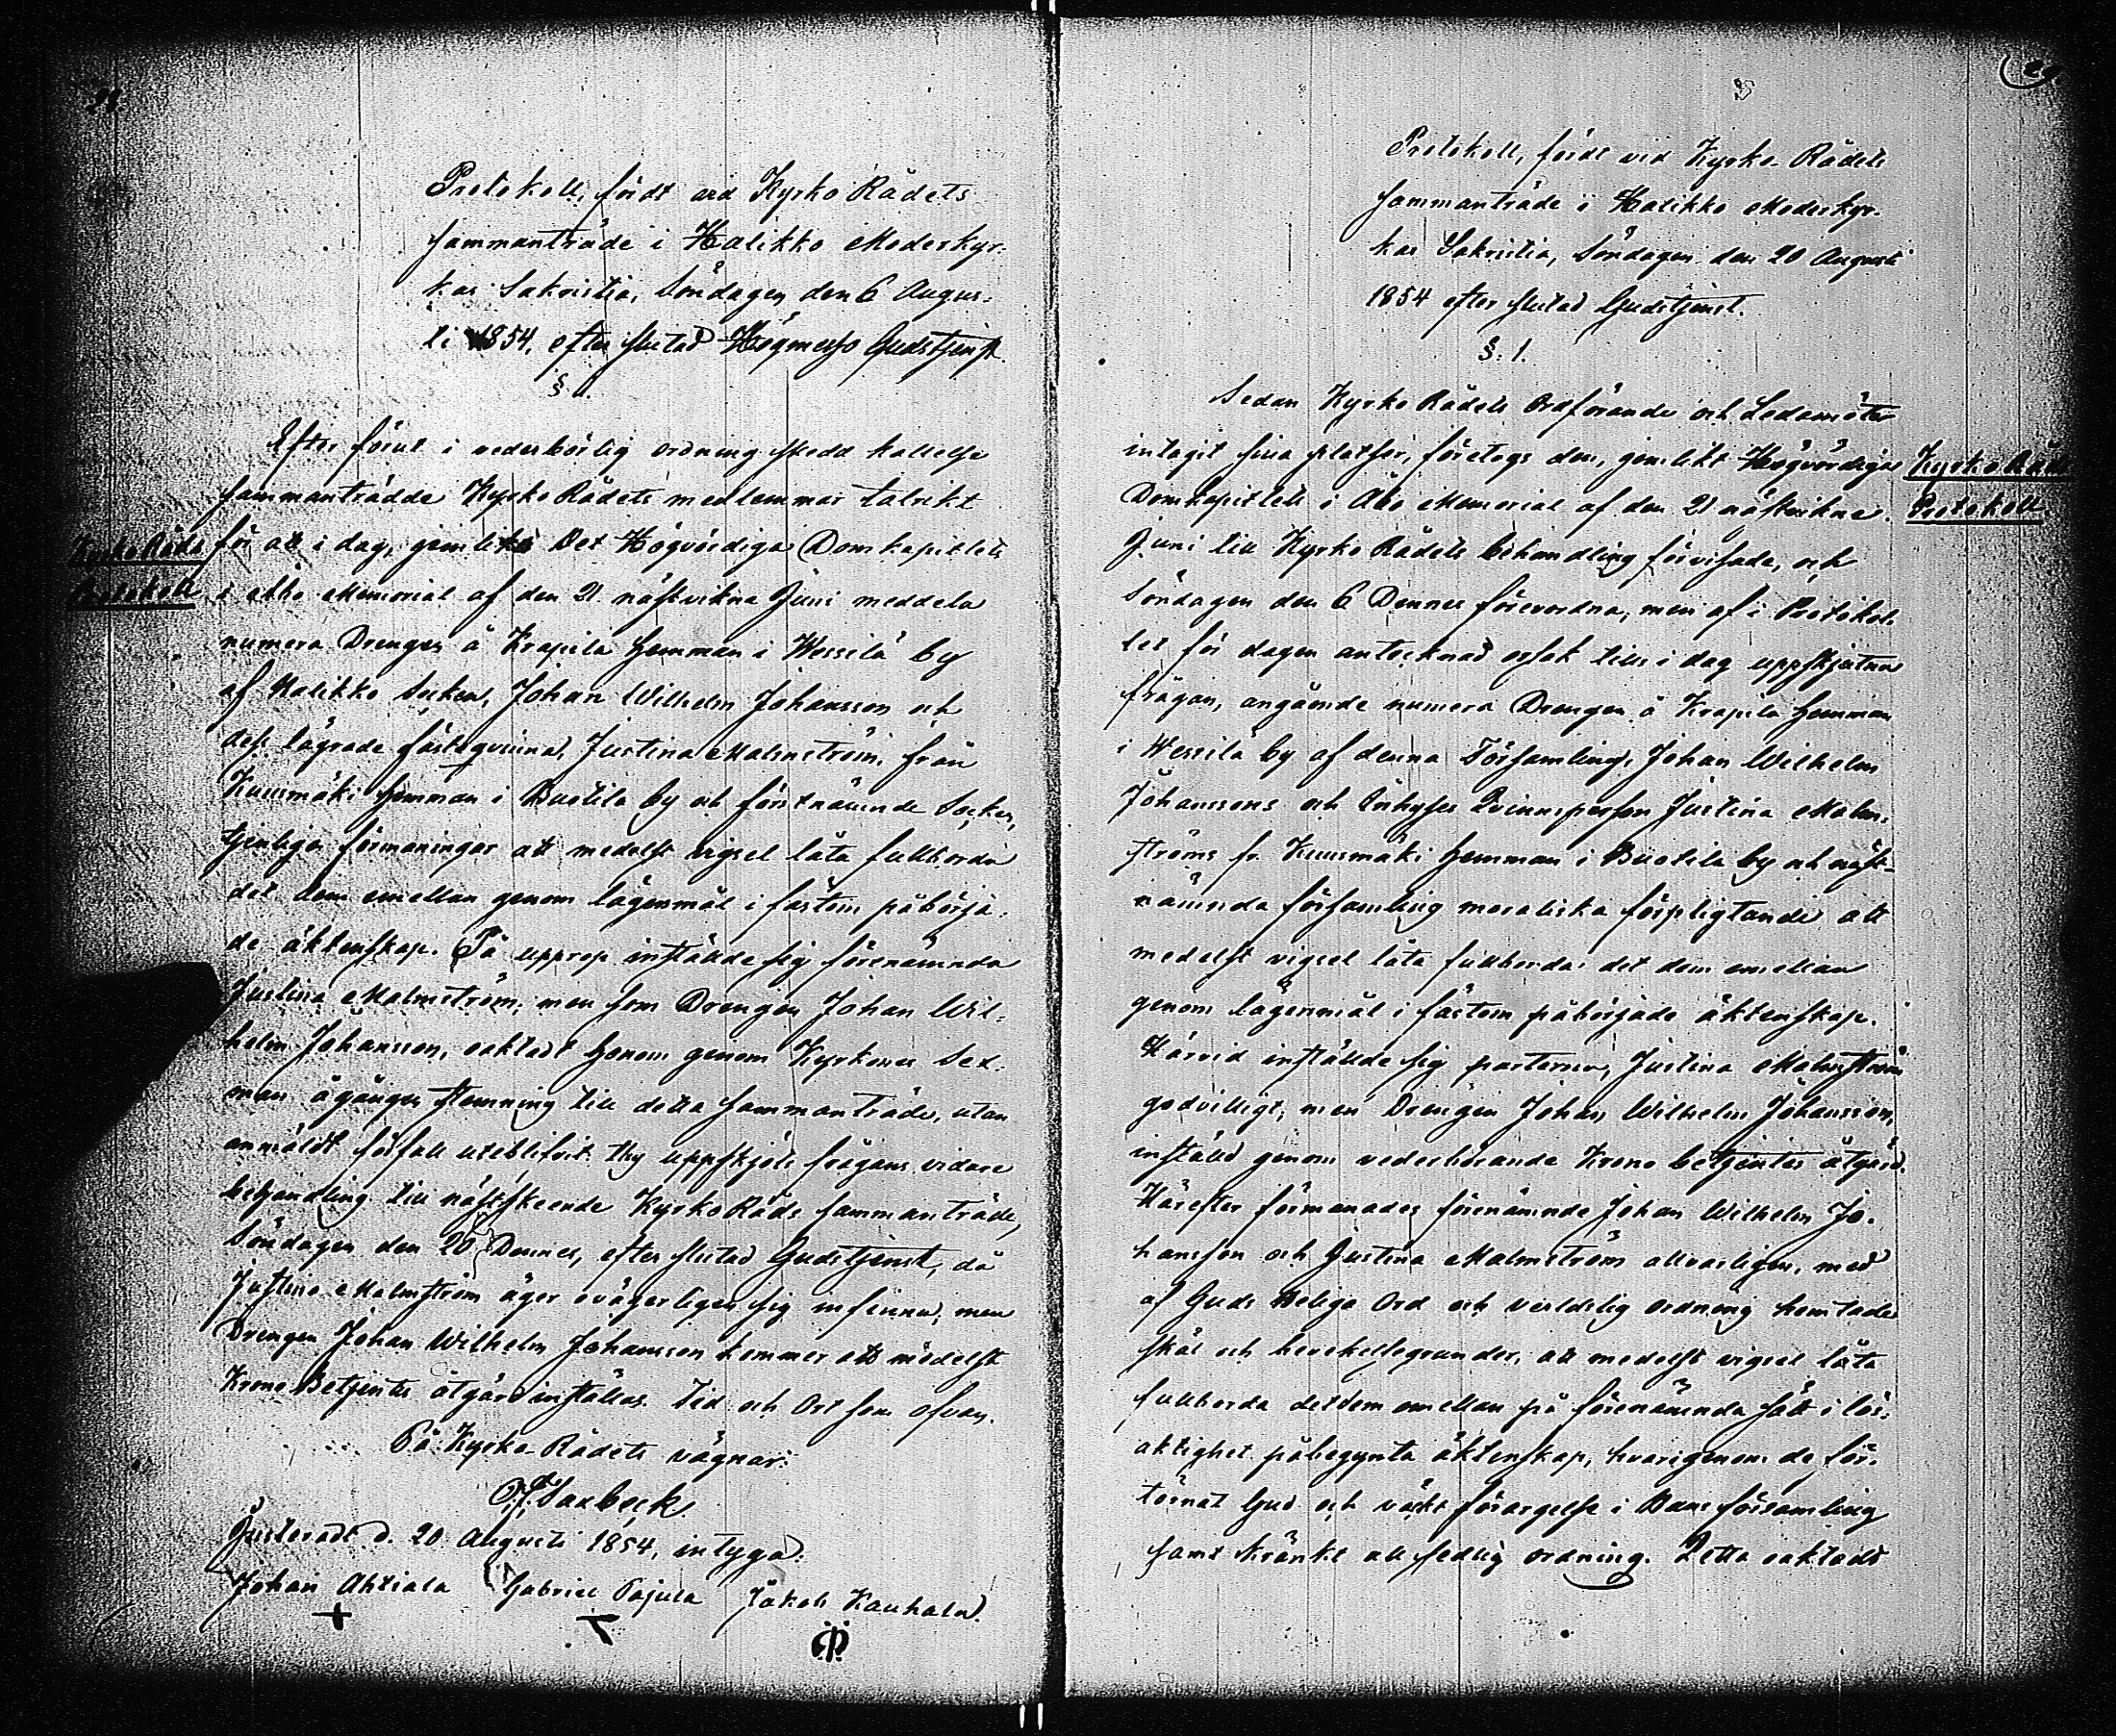 Protokoll, fördt vid Kyrko Rådets
sammanträde i Halikko Moderkyr-
kas Sakristia, Söndagen den 6 Augus-
ti 1854, efter slutad Högmesso Gudstjenst.
§ 1.
Efter förut i vederbörlig ordning skedd kallelse
sammanträdde Kyrko Rådets medlemmar talrikt
Kyrko Råds
Protokoll
för att i dag, jemlikt Det Högvördiga Domkapitlets
i Åbo Memorial af den 21 nästvikna Juni meddela
numera Drengen å Krapila Hemman i Wessilä by
af Halikko Socken, Johan Wilhelm Johansson och
dess lägrade fästeqvinna, Justina Malmström, från
Kuusmäki Hemman i Buotila by och förstnämnde Socken,
tjenliga förmaningar att medelst vigsel låta fullborda
det dem emellan genom lägersmål i fästom påbörja-
de äktenskap. På upprop inställde sig förenämnda
Justina Malmström, men som Drengen Johan Wil-
helm Johansson, oaktadt honom genom Kyrkones Sex-
man ågången stemning till detta sammanträde, utan
anmäldt förfall uteblifvit thy uppskjöts frågans vidare
behandling till nästskeende Kyrko Råds sammanträde,
Söndagen den 20 Dennes, efter slutad Gudstjenst, då
Justina Malmström äger ovägerligen sig infinna, men
Drengen Johan Wilhelm Johansson kommer att medelst
Krono Betjents åtgärd inställas. Tid och Ort som ofvan.
På Kyrko Rådets vägnar:
Saxbäck
Justeradt d. 20 Augusti 1854, intyga:
Johan Ahtiala Gabriel Pajula Jakob Kauhala.
Protokoll, fördt vid Kyrko Rådets
sammanträde i Halikko Moderkyr-
kas Sakristia, Söndagen den 20 Augusti
1854 efter slutad Gudstjenst.
§. 1.
Sedan Kyrko Rådets Ordförande och Ledamöter
intagit sina platser, företogs den, jemlikt Högvördiga
Kyrko Råds
Protokoll.
Domkapitlets i Åbo Memorial af den 21 nästvikne
Juni till Kyrko Rådets behandling förvisade, och
Söndagen den 6 Dennes förevordna, men af i Protokol-
let för dagen antecknad orsak till i dag uppskjutna
frågan, angående numera Drengen å Krapila Hemman
i Wessilä by af denna Församling, Johan Wilhelm
Johanssons och Inhyses Qvinnsperson Justina Malm-
ströms fr. Kuusmäki Hemman i Buotila by och näst-
nämnda församling moraliska förpligtande att
medelst vigsel låta fullborda det dem emellan
genom lägersmål i fästom påbörjade äktenskap.
Härvid inställde sig parterna, Justina Malmström
godvilligt, men Drengen Johan Wilhelm Johansson,
inställd genom vederbörande Krono betjentes åtgärd.
Härefter förmanades förenämnde Johan Wilhelm Jo-
hansson och Justina Malmström allvarligen, med
af Guds Heliga Ord och verldslig ordning hemtade
skäl och bevekelsegrunder, att medelst vigsel låta
fullborda det dem emellan på förenämnda sätt i lös-
aktighet påbegynta äktenskap, hvarigenom de för-
törnat Gud och väckt förargelse i Dess församling
samt kränkt all sedlig ordning. Detta oaktadt